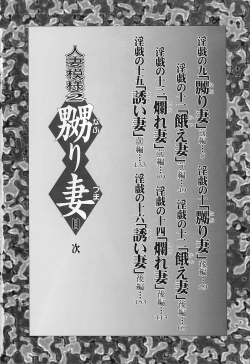 淫戯の九「嬲り妻」前編…5
淫戯の十「嬲り妻」後編…29
淫戯の十一「餓え妻」前編…49
淫戯の十二「餓え妻」後編…69
淫戯の十三「爛れ妻」前編…
淫戯の十四「爛れ妻」後編…113
淫戯の十五「誘い妻」前編…133
淫戯の十六「誘い妻」後編…183
人妻模様之
嬲り妻
なぶ
づま
目次